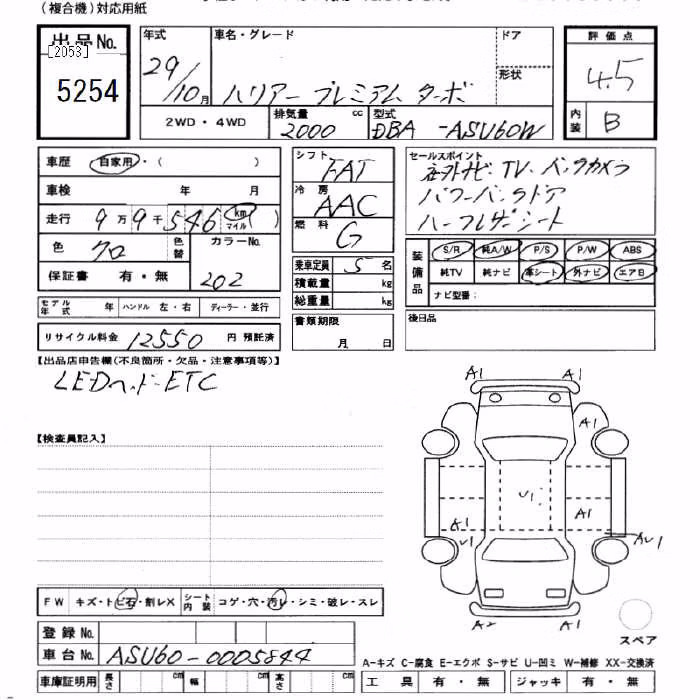 (複合機)対応用紙
出品No.
[2053]
5254
年式
29/10月
車名・グレード
ハリアー プレミアム ターボ
ドア
形状
評価点
4.5
内装
B
2WD・4WD
排気量
2000
cc
型式
DBA-ASU60W
車歴
自家用・( )
車検 年 月
走行 9万9千546 km マイル )
色 クロ
色替
カラーNo.
202
保証書 有・無
モデル年式 年
ハンドル 左・右
ディーラー・並行
リサイクル料金 12550 円 預託済
シフト
FAT
冷房
AAC
燃料
G
乗車定員 5 名
積載量 kg
総重量 kg
書類期限
月 日
セールスポイント
社外ナビ・TV・バックカメラ
パワーバックドア
ハーフレザーシート
装備品
S/R 純A/W P/S P/W ABS
純TV 純ナビ 革シート 外ナビ エアB
ナビ型番:
後日品
【出品店申告欄(不良箇所・欠品・注意事項等)】
LEDヘッド・ETC
【検査員記入】
A1 A1
A1
U1
A1 A1
U1 AU1
A2 A1
スペア
FW キズ・トビ石・割レX
シート内装 コゲ・穴・汚レ・シミ・破レ・スレ
登録No.
車台No. ASU60-0005844
車庫証明用 長さ cm 幅 cm 高さ cm
A-キズ C-腐食 E-エクボ S-サビ U-凹ミ W-補修 XX-交換済
工具 有・無 ジャッキ 有・無